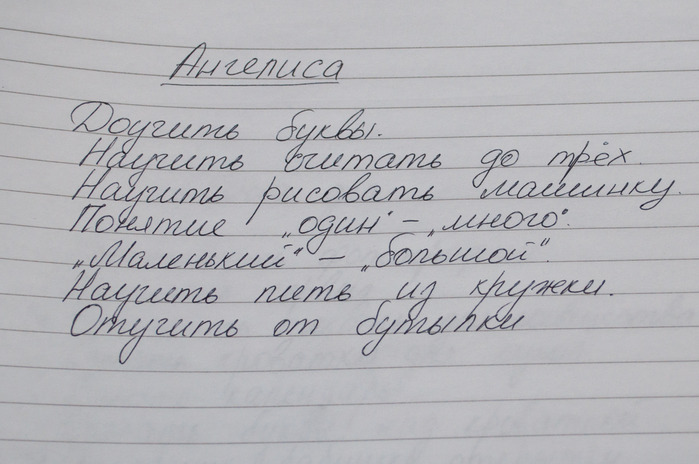 Ангелиса
Доучить буквы.
Научить считать до трёх.
Научить рисовать машинку.
Понятие „один" – „много".
„Маленький" – „большой".
Научить пить из кружки.
Отучить от бутылки